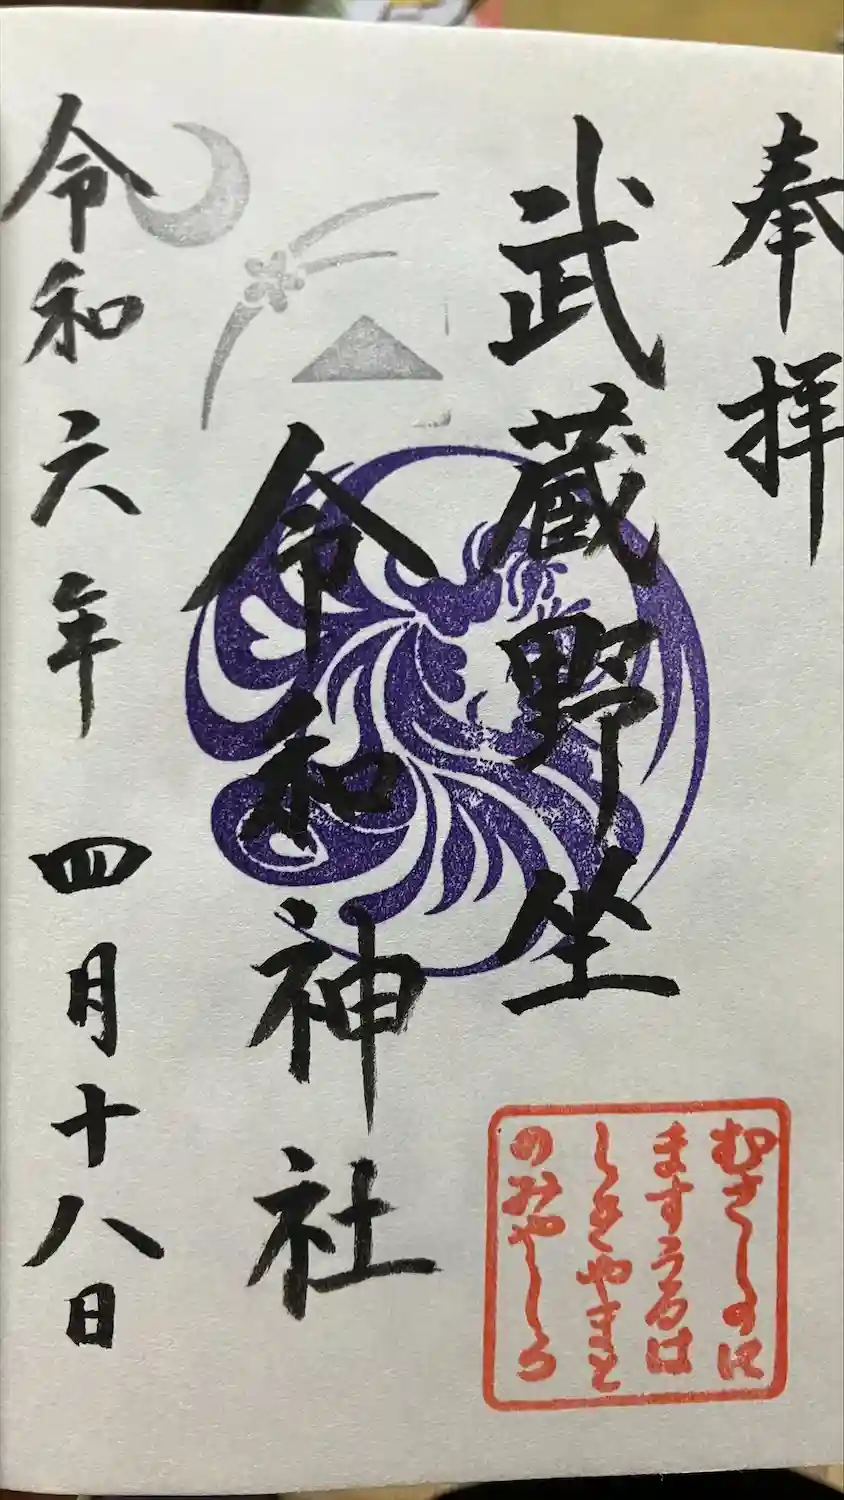 奉拝
武蔵野坐
令和神社
令和六年四月十八日
むさしのに
ますうるは
しきやまと
のみやしろ